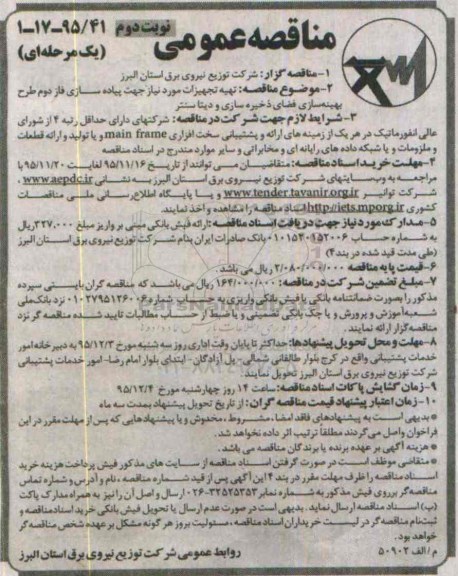 مناقصه عمومی
نوبت دوم
۱-۱۷-۹۵/۴۱
(یک مرحله‌ای)
۱-مناقصه گزار: شرکت توزیع نیروی برق استان البرز
۲-موضوع مناقصه: تهیه تجهیزات مورد نیاز جهت پیاده سازی فاز دوم طرح
بهینه‌سازی فضای ذخیره سازی و دیتا سنتر
۳-شرایط لازم جهت شرکت در مناقصه: شرکتهای دارای حداقل رتبه ۴ از شورای
عالی انفورماتیک در هر یک از زمینه های ارائه و پشتیبانی سخت افزاری main frame و یا تولید و ارائه قطعات
و ملزومات و یا شبکه داده های رایانه ای و مخابراتی و سایر موارد مندرج در اسناد مناقصه
۴-مهلت خرید اسناد مناقصه: متقاضیان می توانند از تاریخ ۹۵/۱۱/۱۶ لغایت ۹۵/۱۱/۲۰ با
مراجعه به وب‌سایتهای شرکت توزیع نیروی برق استان البرز به نشانی www.aepdc.ir یا
شرکت توانیر www.tender.tavanir.org.ir و یا پایگاه اطلاع‌رسانی ملی مناقصات
کشوری http://iets.mporg.ir اسناد مناقصه را مشاهده و اخذ نمایند.
۵-مدارک مورد نیاز جهت دریافت اسناد مناقصه: ارائه فیش بانکی مبنی بر واریز مبلغ ۳۲۷،۰۰۰ ریال
به شماره حساب ۰۱۰۱۵۳۰۱۵۲۰۰۶ بانک صادرات ایران بنام شرکت توزیع نیروی برق استان البرز
(طی مدت قید شده در بند۴)
۶-قیمت پایه مناقصه ۲/۰۸۰/۰۰۰/۰۰۰ ریال می باشد.
۷-مبلغ تضمین شرکت در مناقصه: ۱۶۴/۰۰۰/۰۰۰ ریال می باشد که مناقصه گران بایستی سپرده
مذکور را بصورت ضمانتنامه بانکی یا فیش بانکی واریزی به حساب شماره ۰۱۰۲۷۹۵۱۲۶۰۰۶ نزد بانک ملی
شعبه آموزش و پرورش و یا چک بانکی تضمینی و یا ضبط از محل مطالبات تایید شده مناقصه گر نزد
مناقصه گزار ارائه نمایند.
۸-مهلت و محل تحویل پیشنهادها: حداکثر تا پایان وقت اداری روز سه شنبه مورخ ۹۵/۱۲/۳ به دبیرخانه امور
خدمات پشتیبانی واقع در کرج بلوار طالقانی شمالی- پل آزادگان- ابتدای بلوار امام رضا- امور خدمات پشتیبانی
شرکت توزیع نیروی برق استان البرز تحویل نمایند.
۹-زمان گشایش پاکات اسناد مناقصه: ساعت ۱۴ روز چهارشنبه مورخ ۹۵/۱۲/۴
۱۰-زمان اعتبار پیشنهاد قیمت مناقصه گران: از تاریخ تحویل پیشنهاد بمدت سه ماه
* بدیهی است به پیشنهادهای فاقد امضا، مشروط، مخدوش و یا پیشنهادهایی که پس از مهلت مقرر در این
فراخوان واصل می گردند مطلقا ترتیب اثر داده نخواهد شد.
* هزینه آگهی بر عهده برنده یا برندگان مناقصه می باشد.
* متقاضی موظف است در صورت گرفتن اسناد مناقصه از سایت های مذکور فیش پرداخت هزینه خرید
اسناد مناقصه را ظرف مهلت مقرر در بند ۴ این آگهی پس از قید شماره مناقصه، نام و آدرس و شماره تماس
مناقصه‌گر بر روی فیش مذکور به شماره نمابر ۳۲۵۲۵۳۵۳-۰۲۶ ارسال و اصل آن را نیز به همراه مدارک پاکت
(ب) اسناد مناقصه ارسال نماید. بدیهی است در صورت عدم ارسال یا تحویل فیش بانکی خرید اسناد مناقصه و
ثبت‌نام مناقصه گر در لیست خریداران اسناد مناقصه، مسئولیت بروز هر گونه مشکل بر عهده شخص مناقصه گر
خواهد بود.
روابط عمومی شرکت توزیع نیروی برق استان البرز
م/الف ۵۰۹۰۲